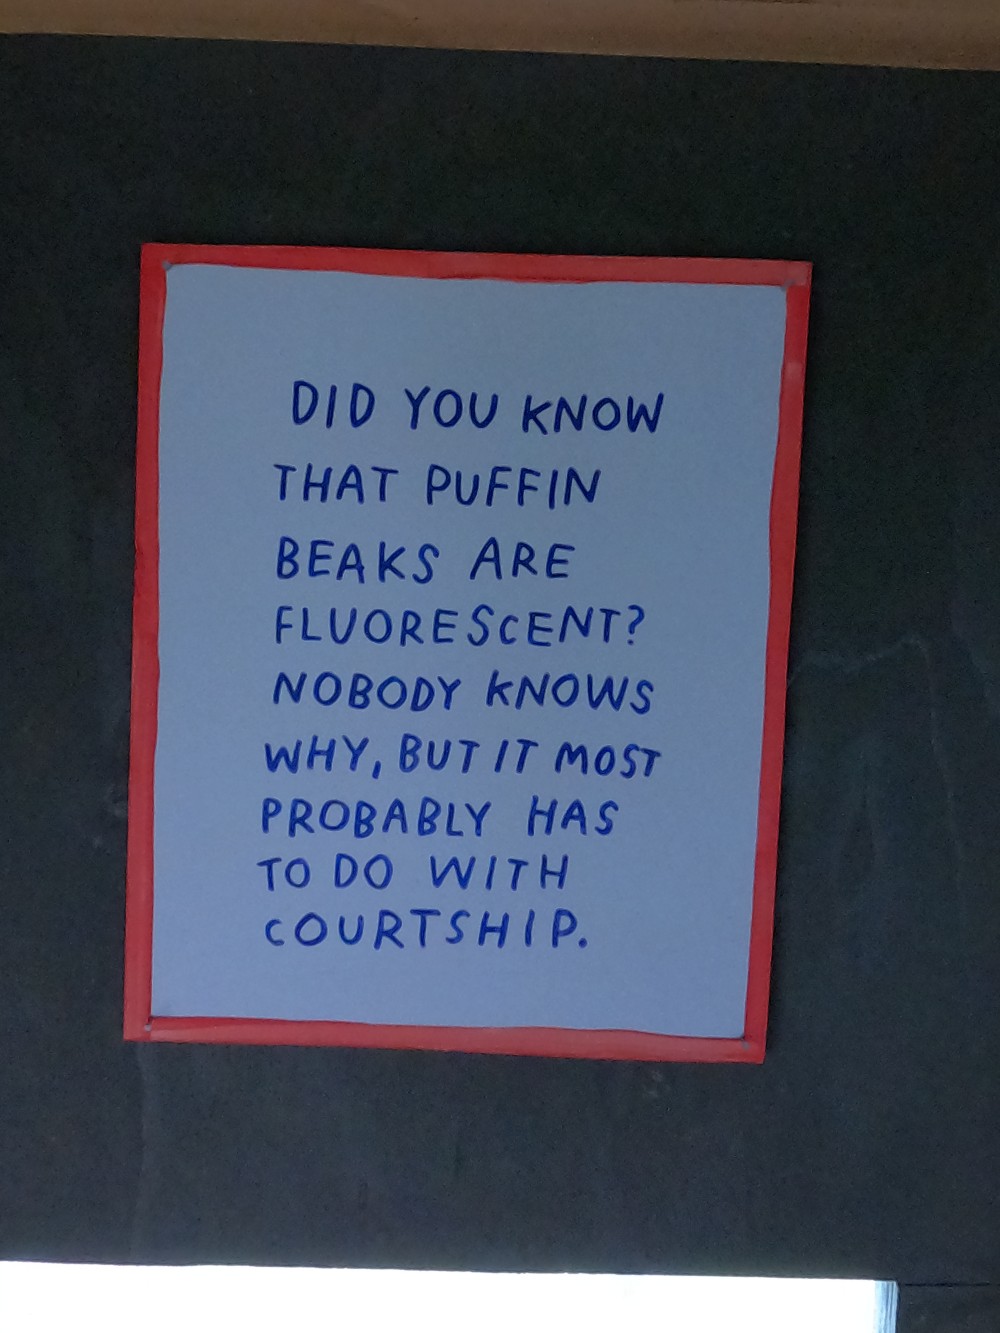 DID YOU KNOW
THAT PUFFIN
BEAKS ARE
FLUORESCENT?
NOBODY KNOWS
WHY, BUT IT MOST
PROBABLY HAS
TO DO WITH
COURTSHIP.